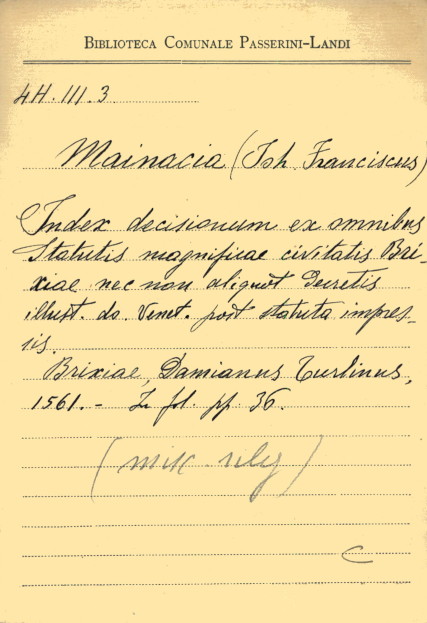 BIBLIOTECA COMUNALE PASSERINI-LANDI
4H. III. 3
Mainacia (Joh. Franciscus)
Index decisionum ex omnibus
Statutis magnificae civitatis Bri-
xiae nec non aliquot Decretis
illust. do. Venet. post statuta impres-
sis.
Brixiae, Damianus Turlinus,
1561. - In fol. pp. 36.
(misc. rileg)
C